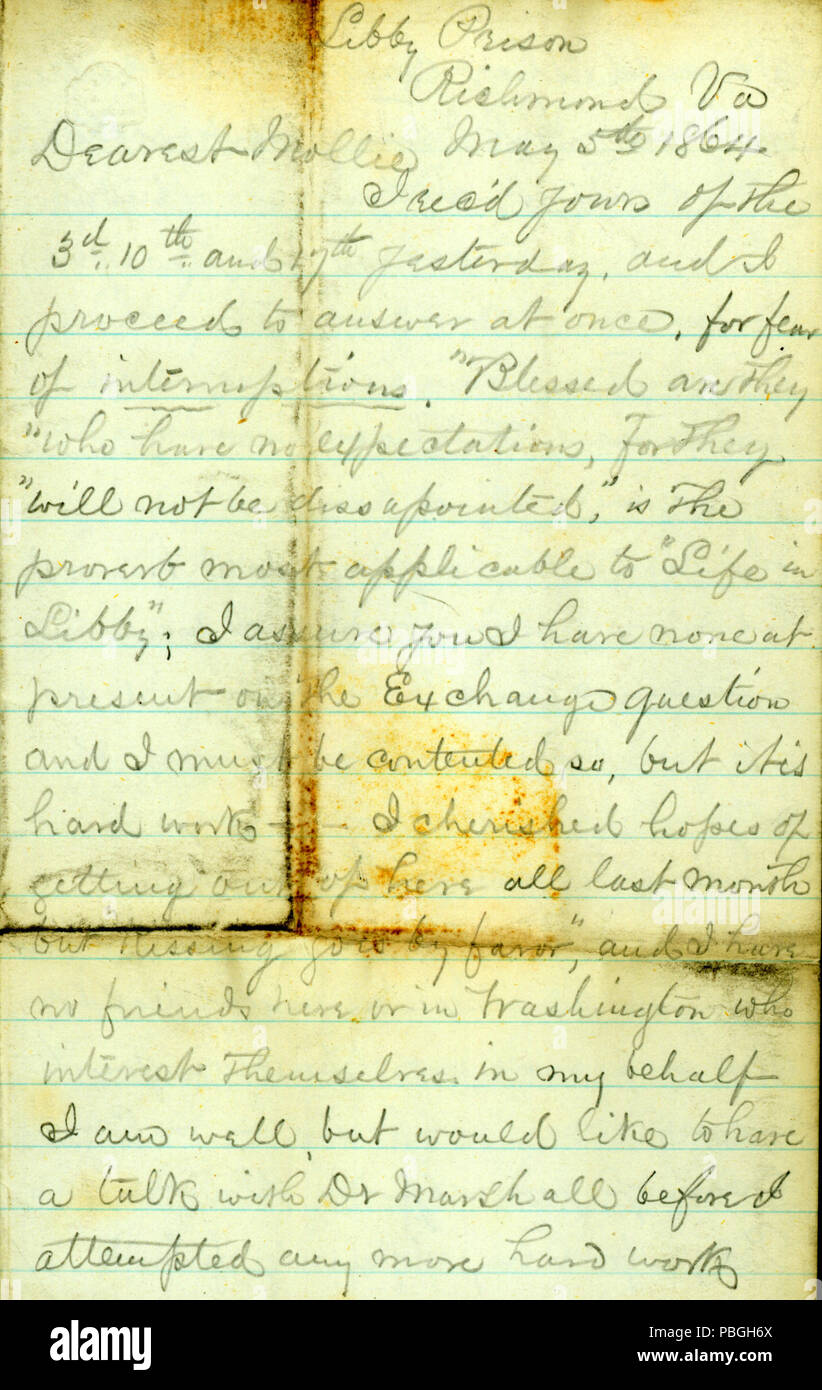 Libby Prison
Richmond Va
Dearest Mollie May 5th 1864
I rec'd yours of the
3d. 10th and 17th yesterday, and I
proceed to answer at once, for fear
of interruptions. "Blessed are they
"who have no expectations, for they
"will not be dissapointed," is the
proverb most applicable to "Life in
Libby"; I assure you I have none at
present on the Exchange question
and I must be contented so, but it is
hard work — — I cherished hopes of
getting out of here all last month
but Kissing goes by favor", and I have
no friends here or in Washington who
interest themselves in my behalf
I am well, but would like to have
a talk with Dr Marshall before I
attempted any more hard work
alamy
a
alamy stock photo
PBGH6X
www.alamy.com